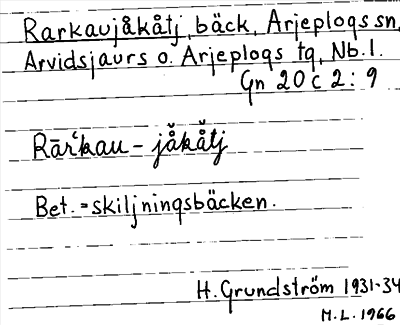 Rarkaujåkåtj, bäck, Arjeplogs sn,
Arvidsjaurs o. Arjeplogs tg, Nb.l.
Gn 20 C 2:9
Rār‛kau - jå̆kå̆tj
Bet. = skiljningsbäcken.
H. Grundström 1931-34
M.L. 1966